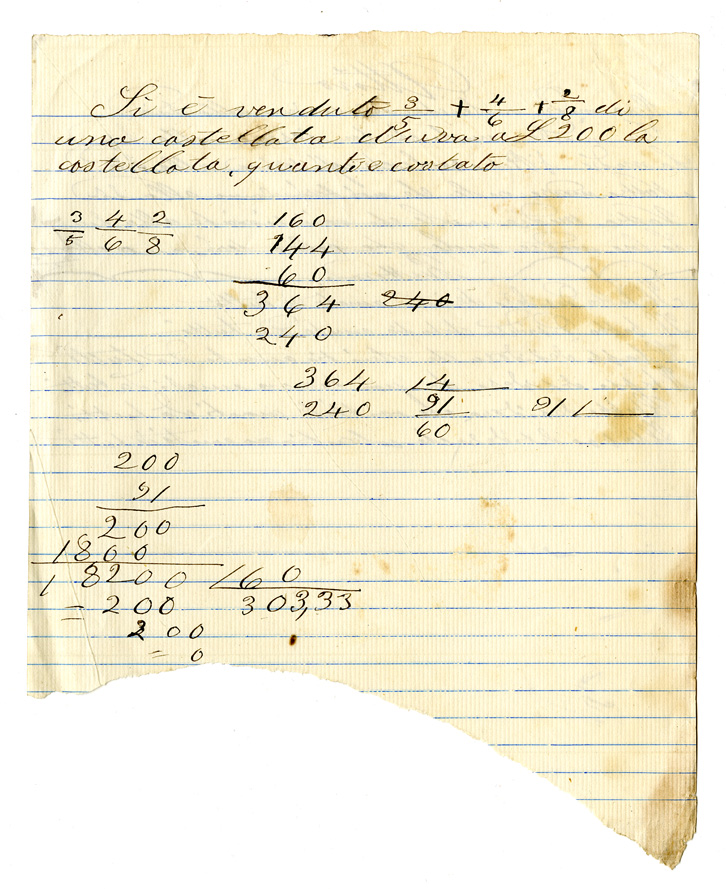 Si è venduto 3/5 + 4/6 + 2/8 di
una castellata d'uva a £ 200 la
castellata, quanto e costato
3/5 4/6 2/8 160
144
60
364 240
240
364 14
240 91 91
60
200
91
200
1800
18200 60
= 200 303,33
200
= 0